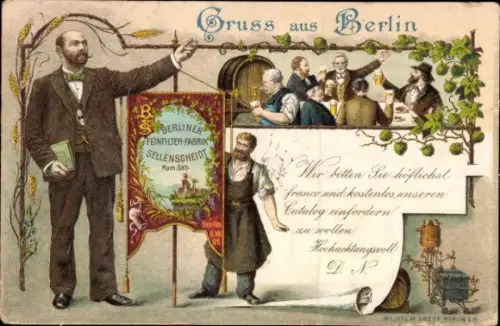 Gruss aus Berlin
B
F
S
BERLINER
FEINFILTER-FABRIK
SELLENSCHEIDT
Kom. Ges.
Berlin
S.W.
Wir bitten Sie höflichst
franco und kostenlos unseren
Catalog einfordern
zu wollen
Hochachtungsvoll
D. N
WILHELM GREVE, BERLIN S.W.